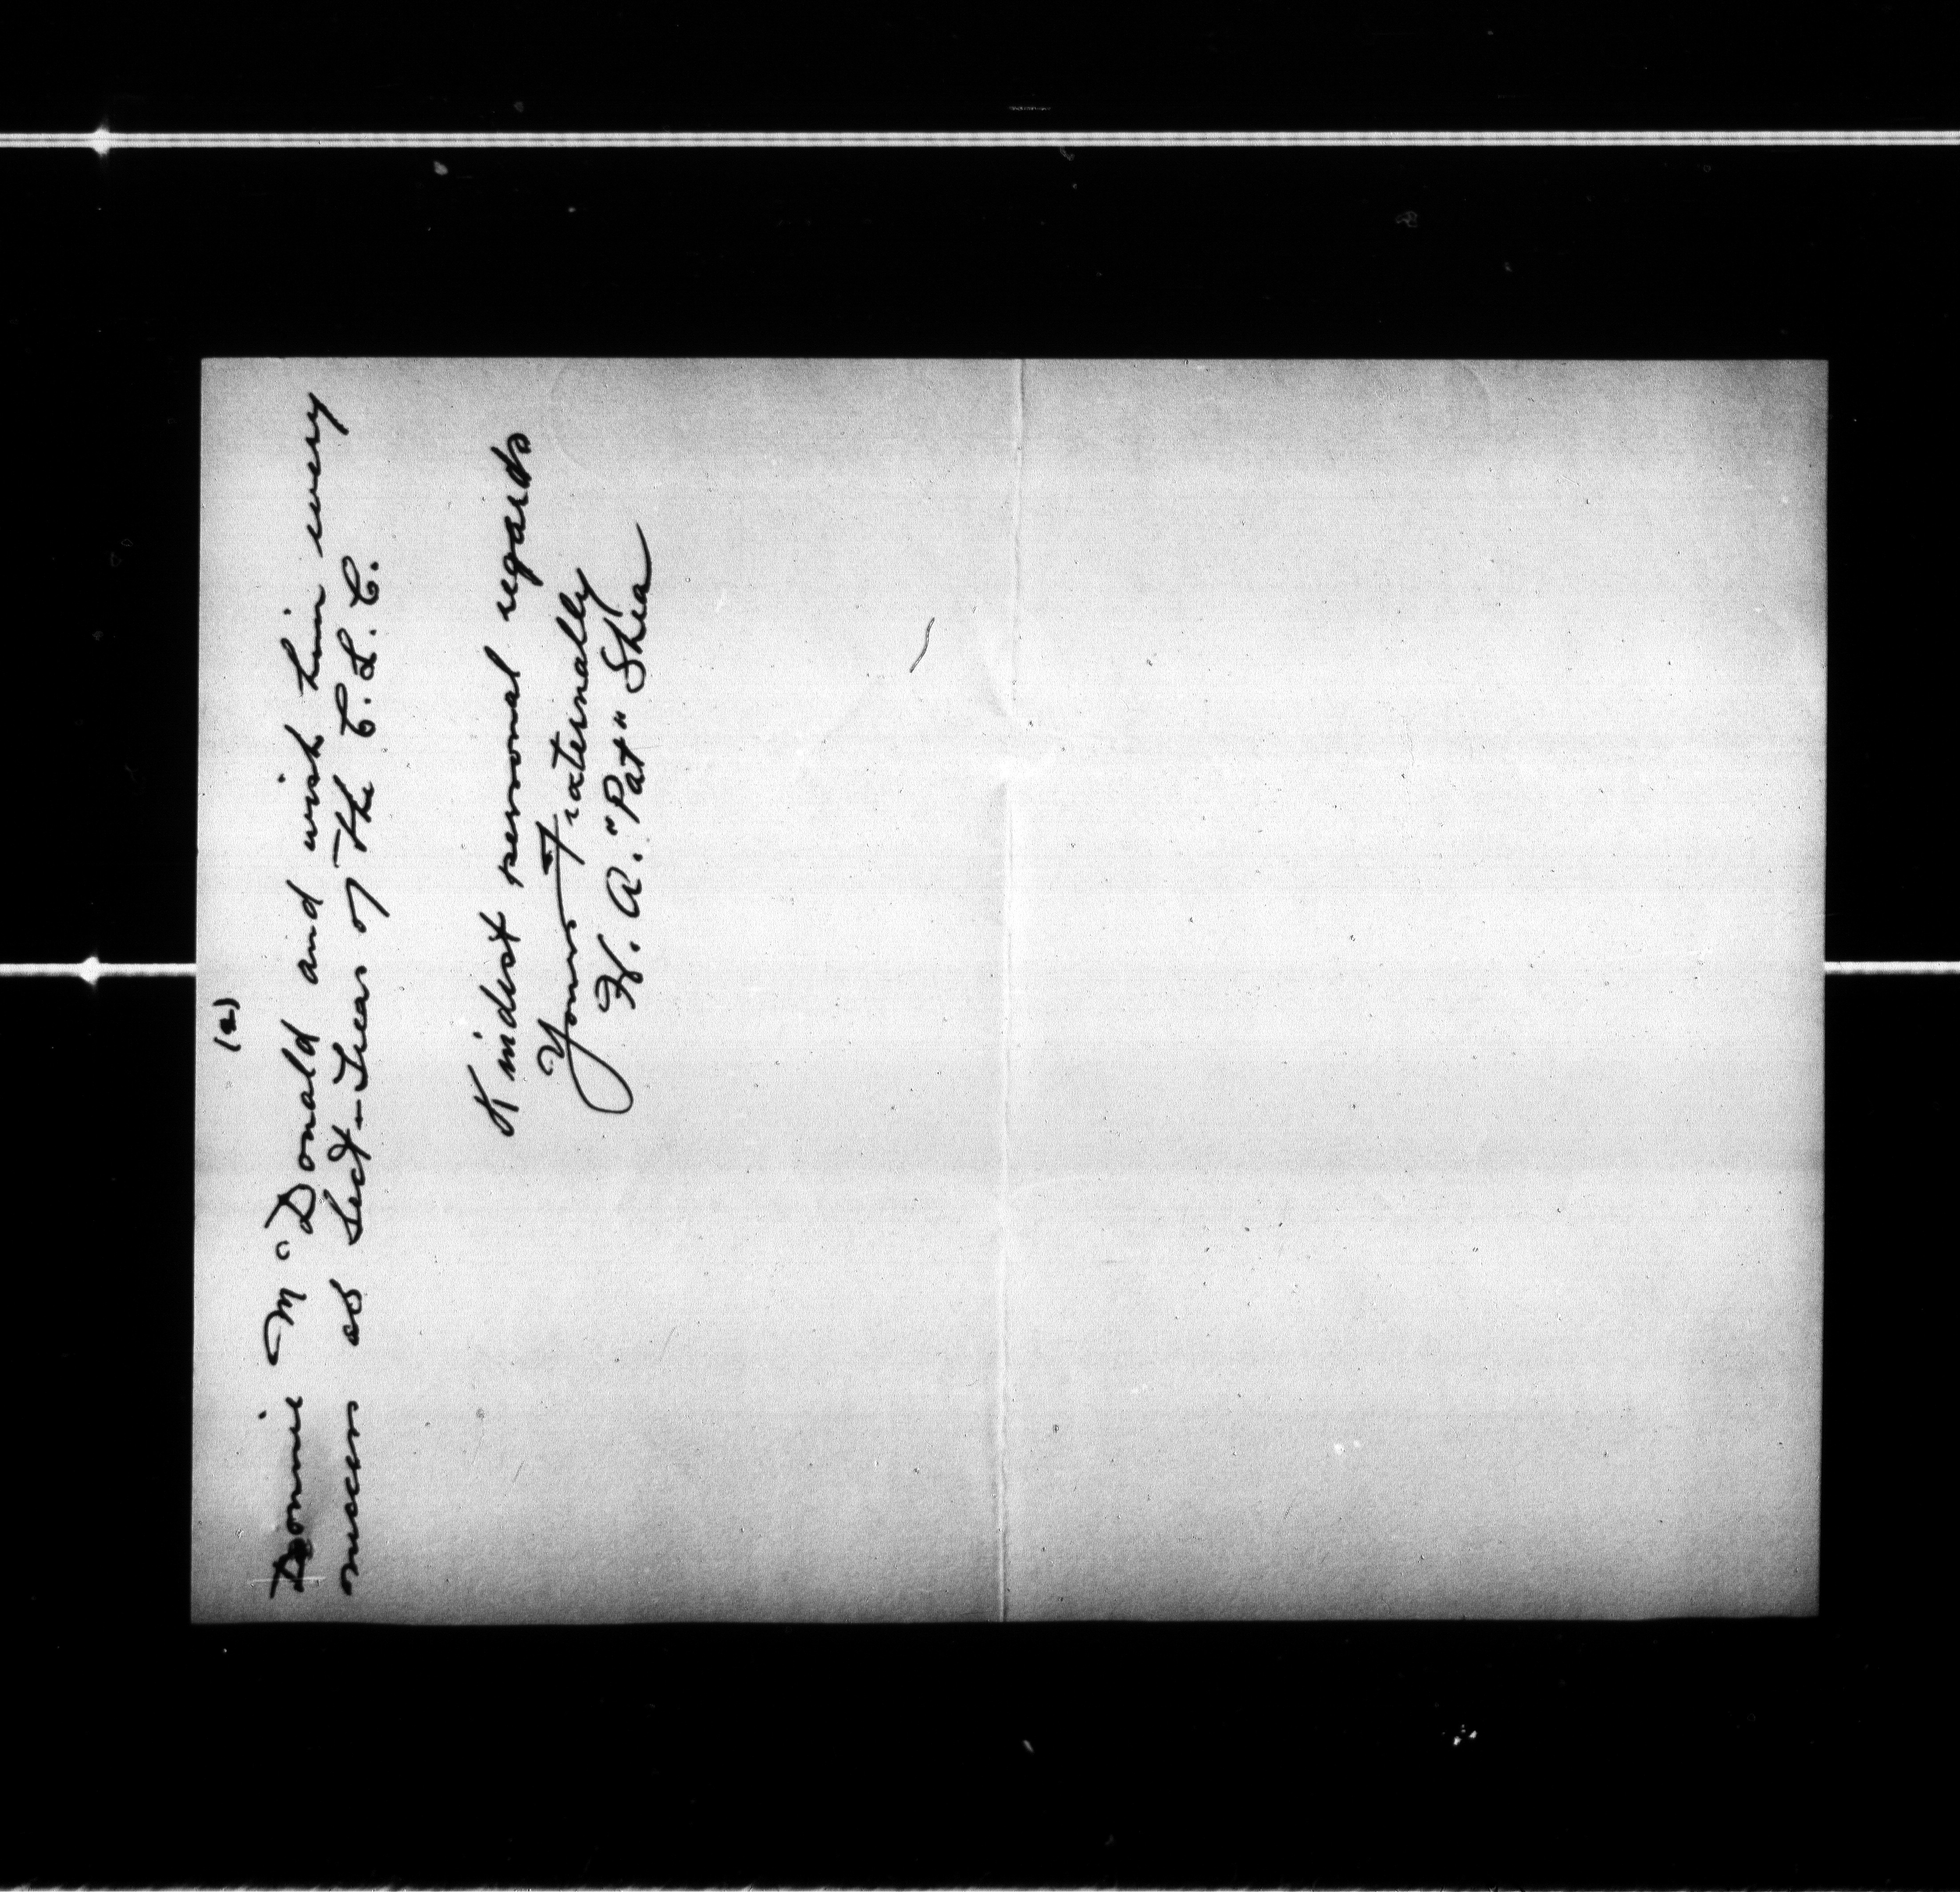 (2)
Donnie McDonald and wish him every
success as Sect-Treas of the C.L.C.
Kindest personal regards
Yours Fraternally
H. A. "Pat" Shea